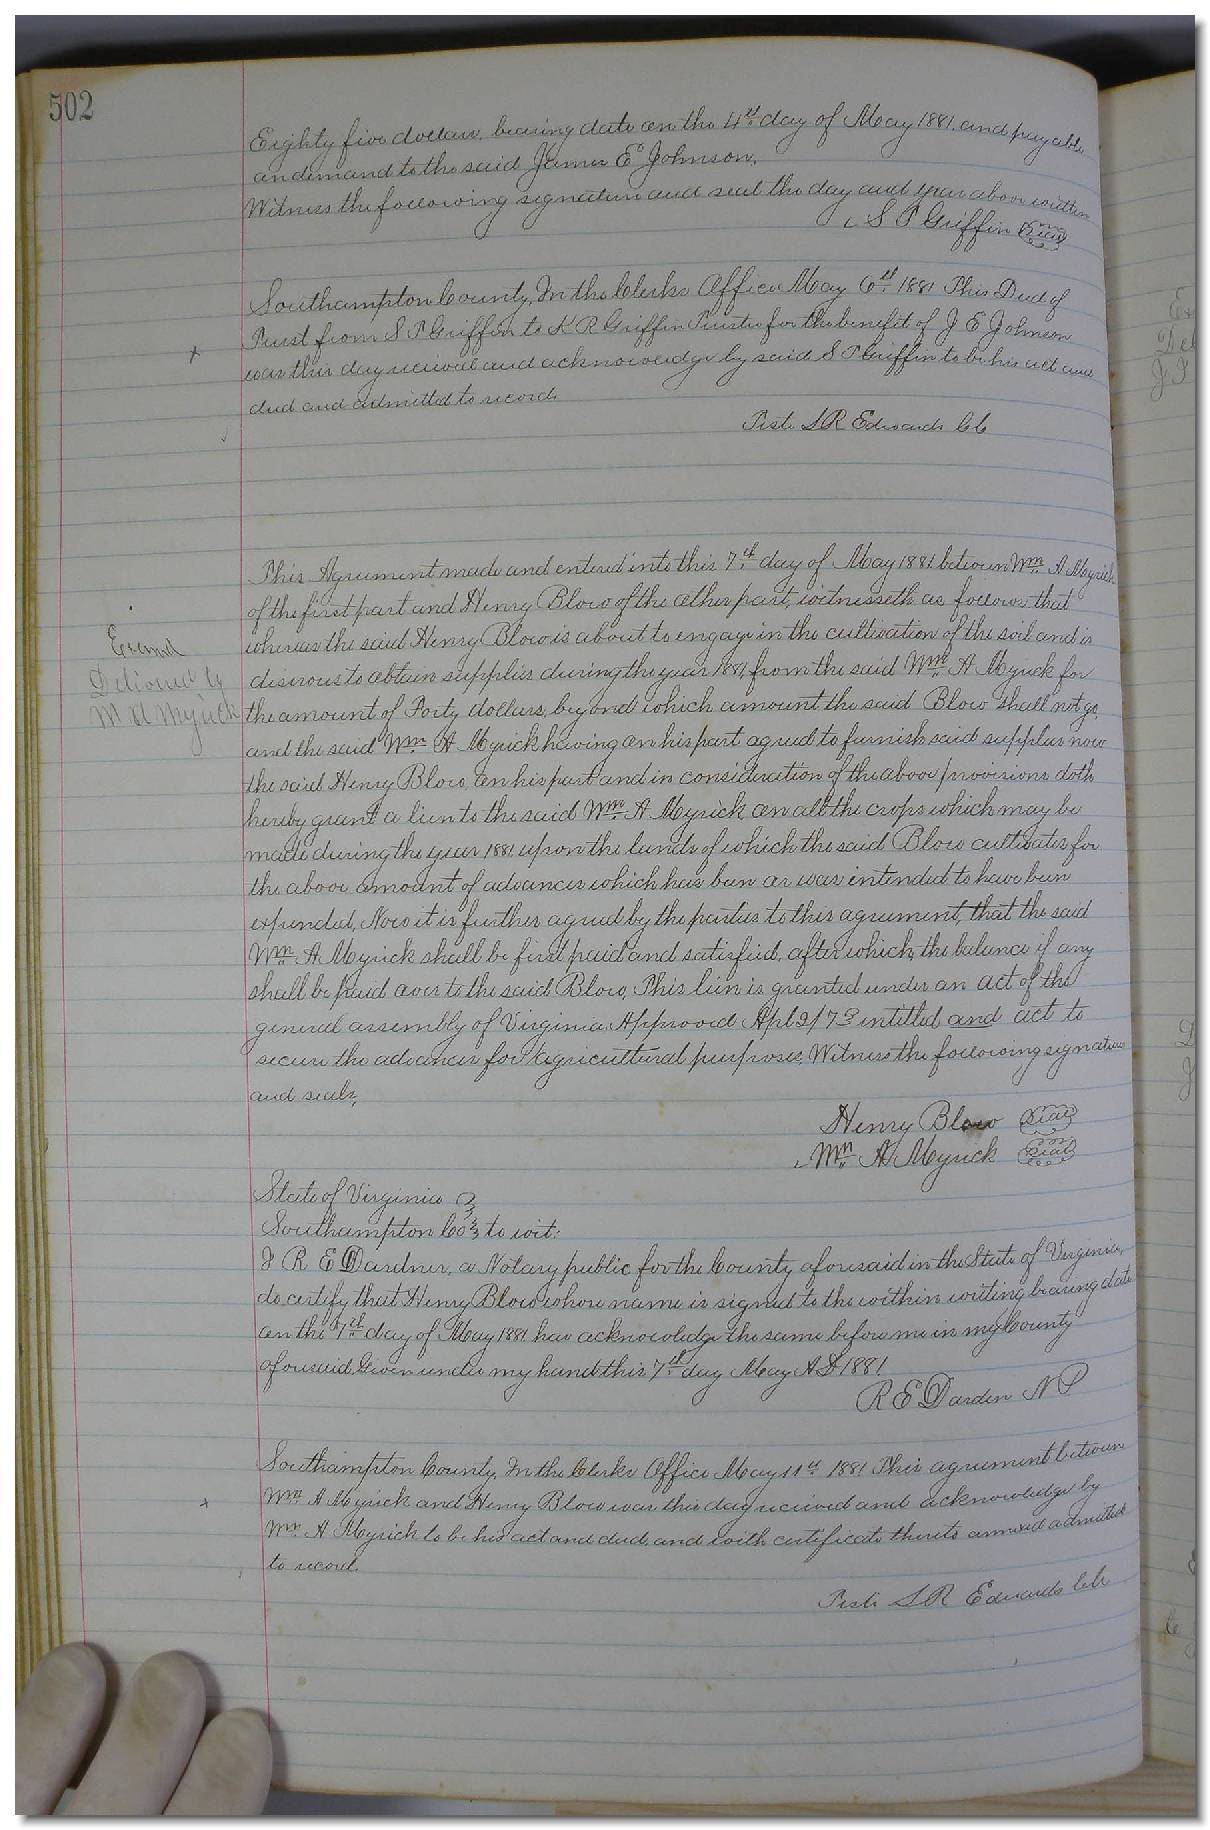 502
Eighty five dollars, bearing date on the 4th day of May 1881. and payable
on demand to the said James E Johnson.
Witness the following signature and seal the day and year above written
S P Griffin Seal
Southampton County, In the Clerks Office May 6th 1881 This Deed of
Trust from S P Griffin to K R Griffin Trustee for the benefit of J E Johnson
was this day received and acknowledge by said S P Griffin to be his act and
deed and admitted to record.
Teste L R Edwards CC
This Agreement made and entered into this 7th day of May 1881 between Wm A Myrick
of the first part and Henry Blow of the other part, witnesseth as follows, that
whereas the said Henry Blow is about to engage in the cultivation of the soil and is
Examd
desirous to obtain supplies during the year 1881, from the said Wm A Myrick for
Delivered to
the amount of Forty dollars, beyond which amount the said Blow shall not go,
W A Myrick
and the said Wm A Myrick having on his part agreed to furnish said supplies now
the said Henry Blow on his part and in consideration of the above provisions doth
hereby grant a lien to the said Wm A Myrick on all the crops which may be
made during the year 1881 upon the lands of which the said Blow cultivates for
the above amount of advances which has been or was intended to have been
expended, Now it is further agreed by the parties to this agreement, that the said
Wm A Myrick shall be first paid and satisfied, after which, the balance if any
shall be paid over to the said Blow, This lien is granted under an act of the
general assembly of Virginia Approved Apl 2/73 entitled and act to
secure the advances for Agricultural purposes. Witness the following signatures
and seals,
Henry Blow Seal
Wm A Myrick Seal
State of Virginia
Southampton Co to wit:
I R E Dardner, a Notary public for the County aforesaid in the State of Virginia,
do certify that Henry Blow whose name is signed to the within writing bearing date
on the 7th day of May 1881 has acknowledge the same before me in my County
aforesaid, Given under my hand this 7th day May A D 1881.
R E Darden N P
Southampton County, In the Clerks Office May 11th 1881 This agreement between
Wm A Myrick and Henry Blow was this day received and acknowledge by
Wm A Myrick to be his act and deed, and with certificate thereto annexed admitted
to record.
Teste L R Edwards Clk